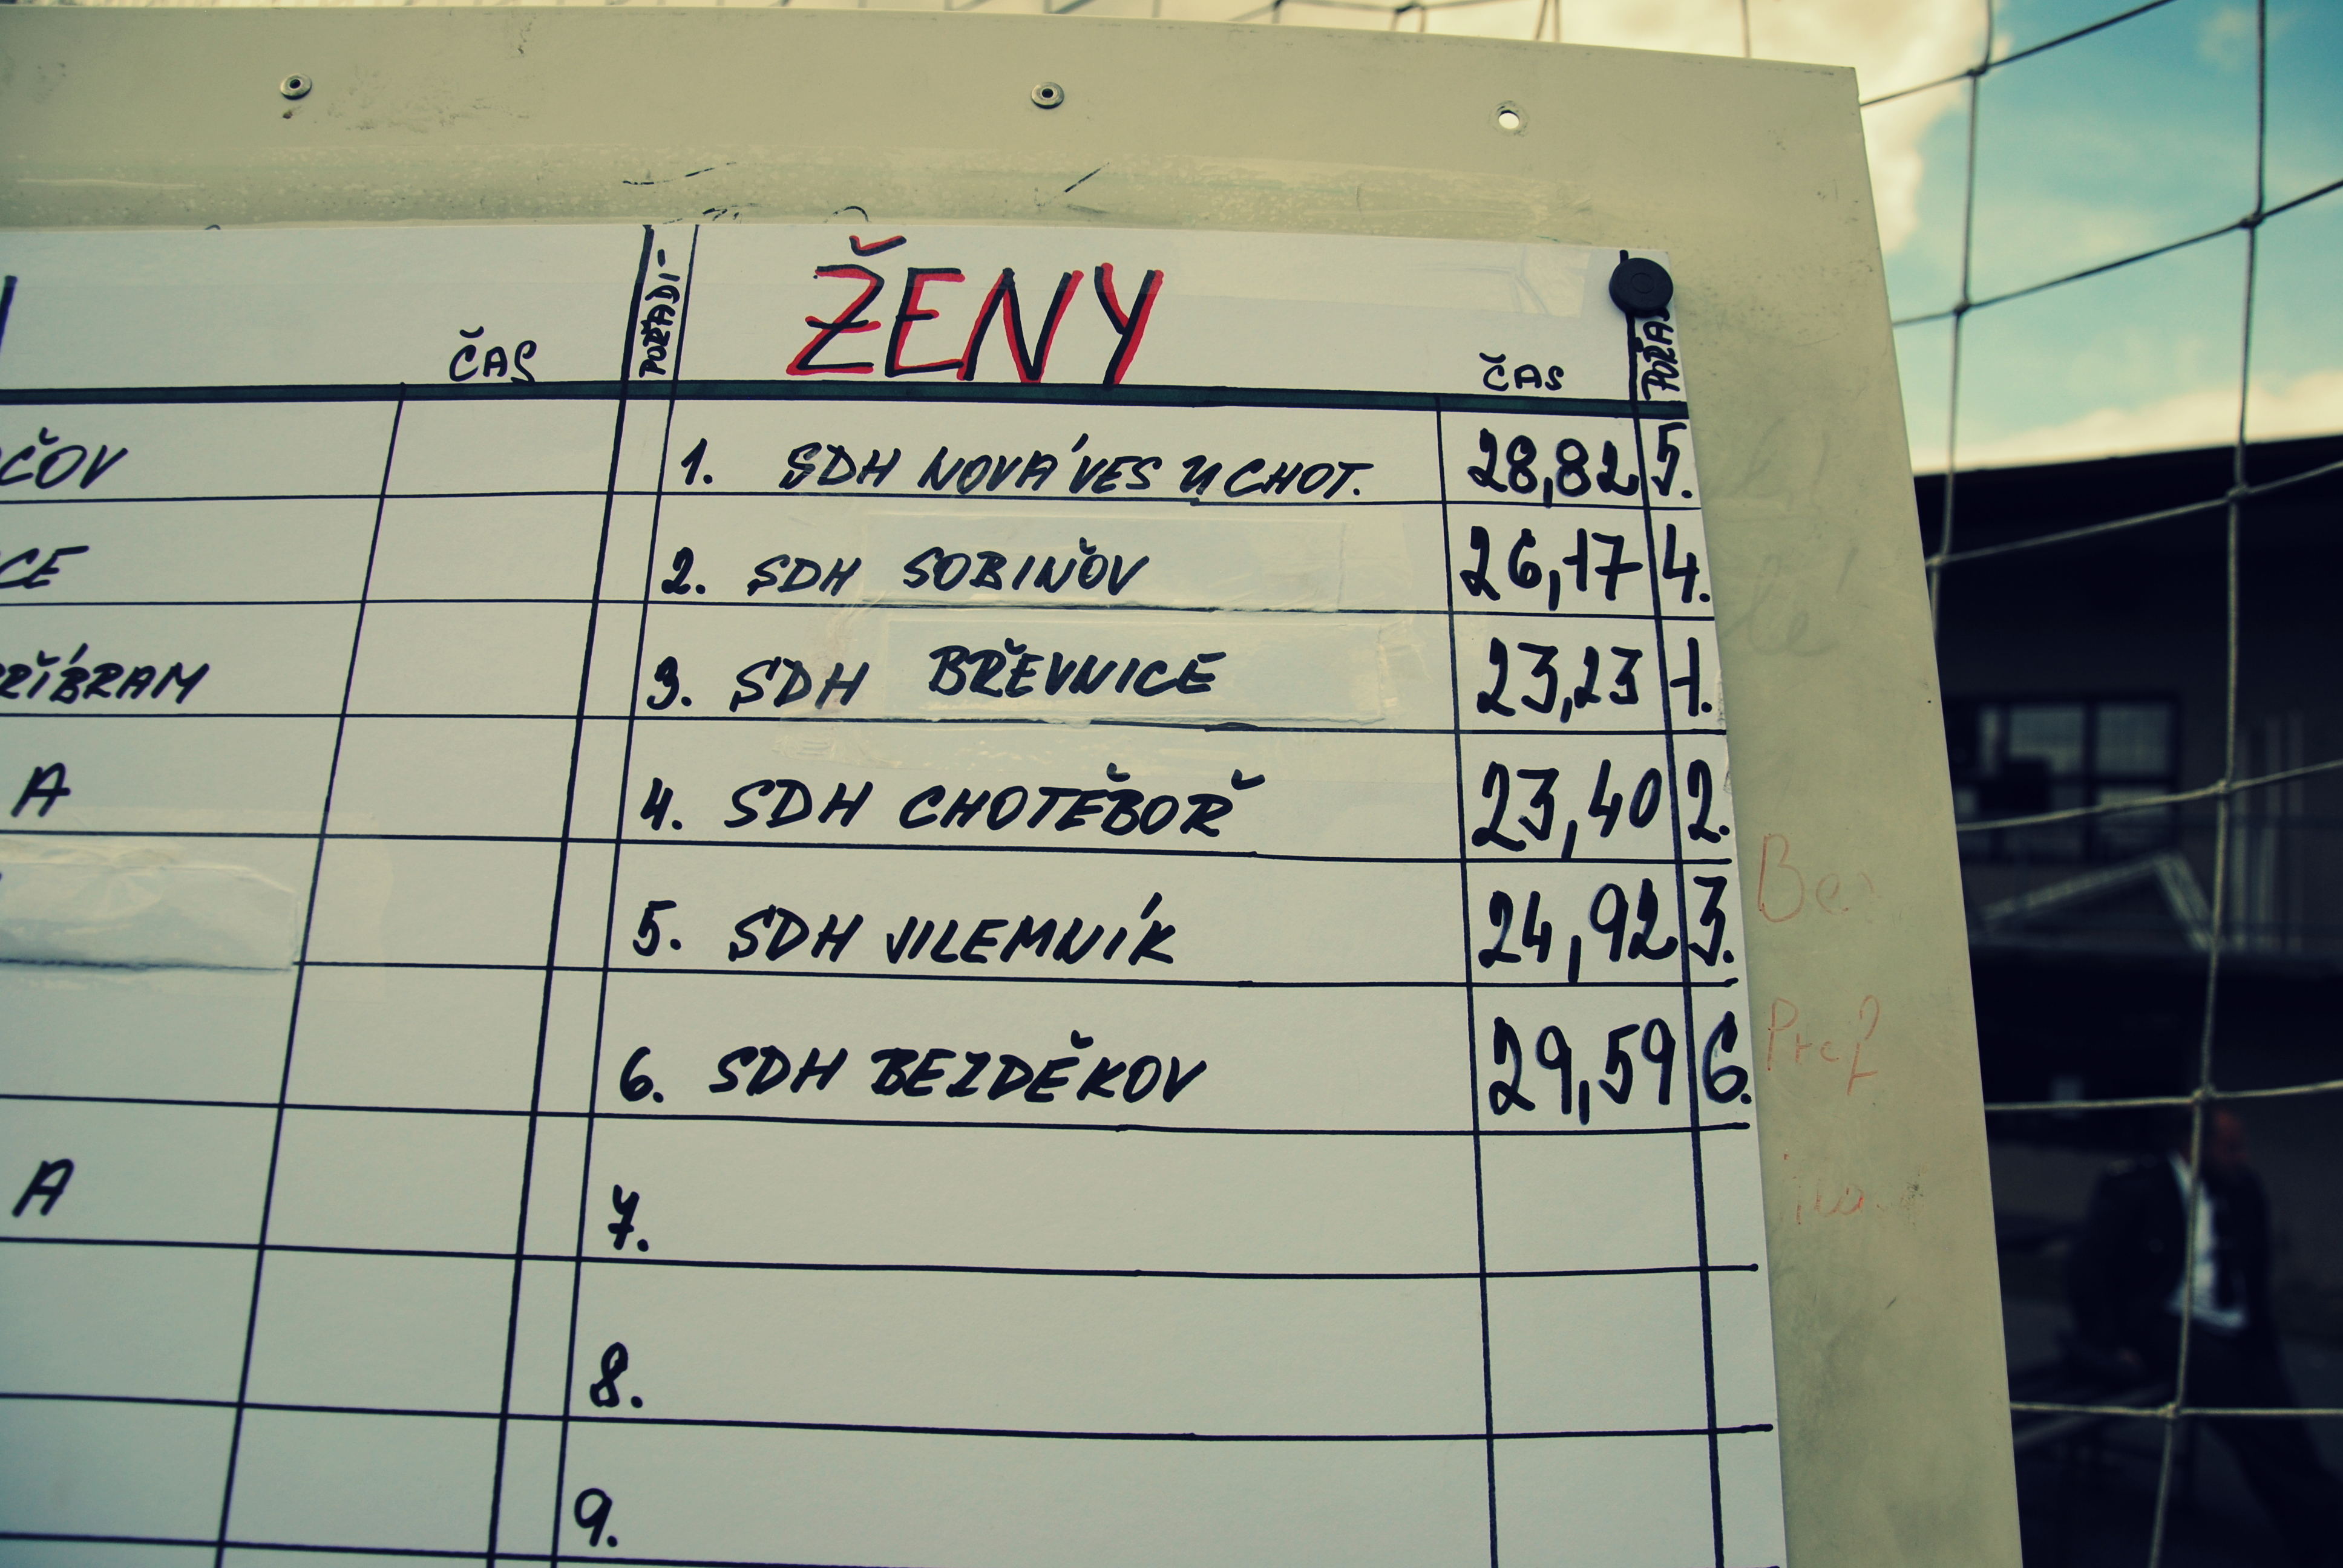 ČAS
POŘADÍ
ŽENY
ČAS
POŘAD
ČOV
1. SDH NOVÁ VES U CHOT. 28,82 5.
CE
2. SDH SOBIŇOV 26,17 4.
PŘÍBRAM
3. SDH BŘEVNICE 23,23 1.
A
4. SDH CHOTĚBOŘ 23,40 2.
5. SDH JILEMNÍK 24,92 3.
6. SDH BEZDĚKOV 29,59 6.
A
7.
8.
9.